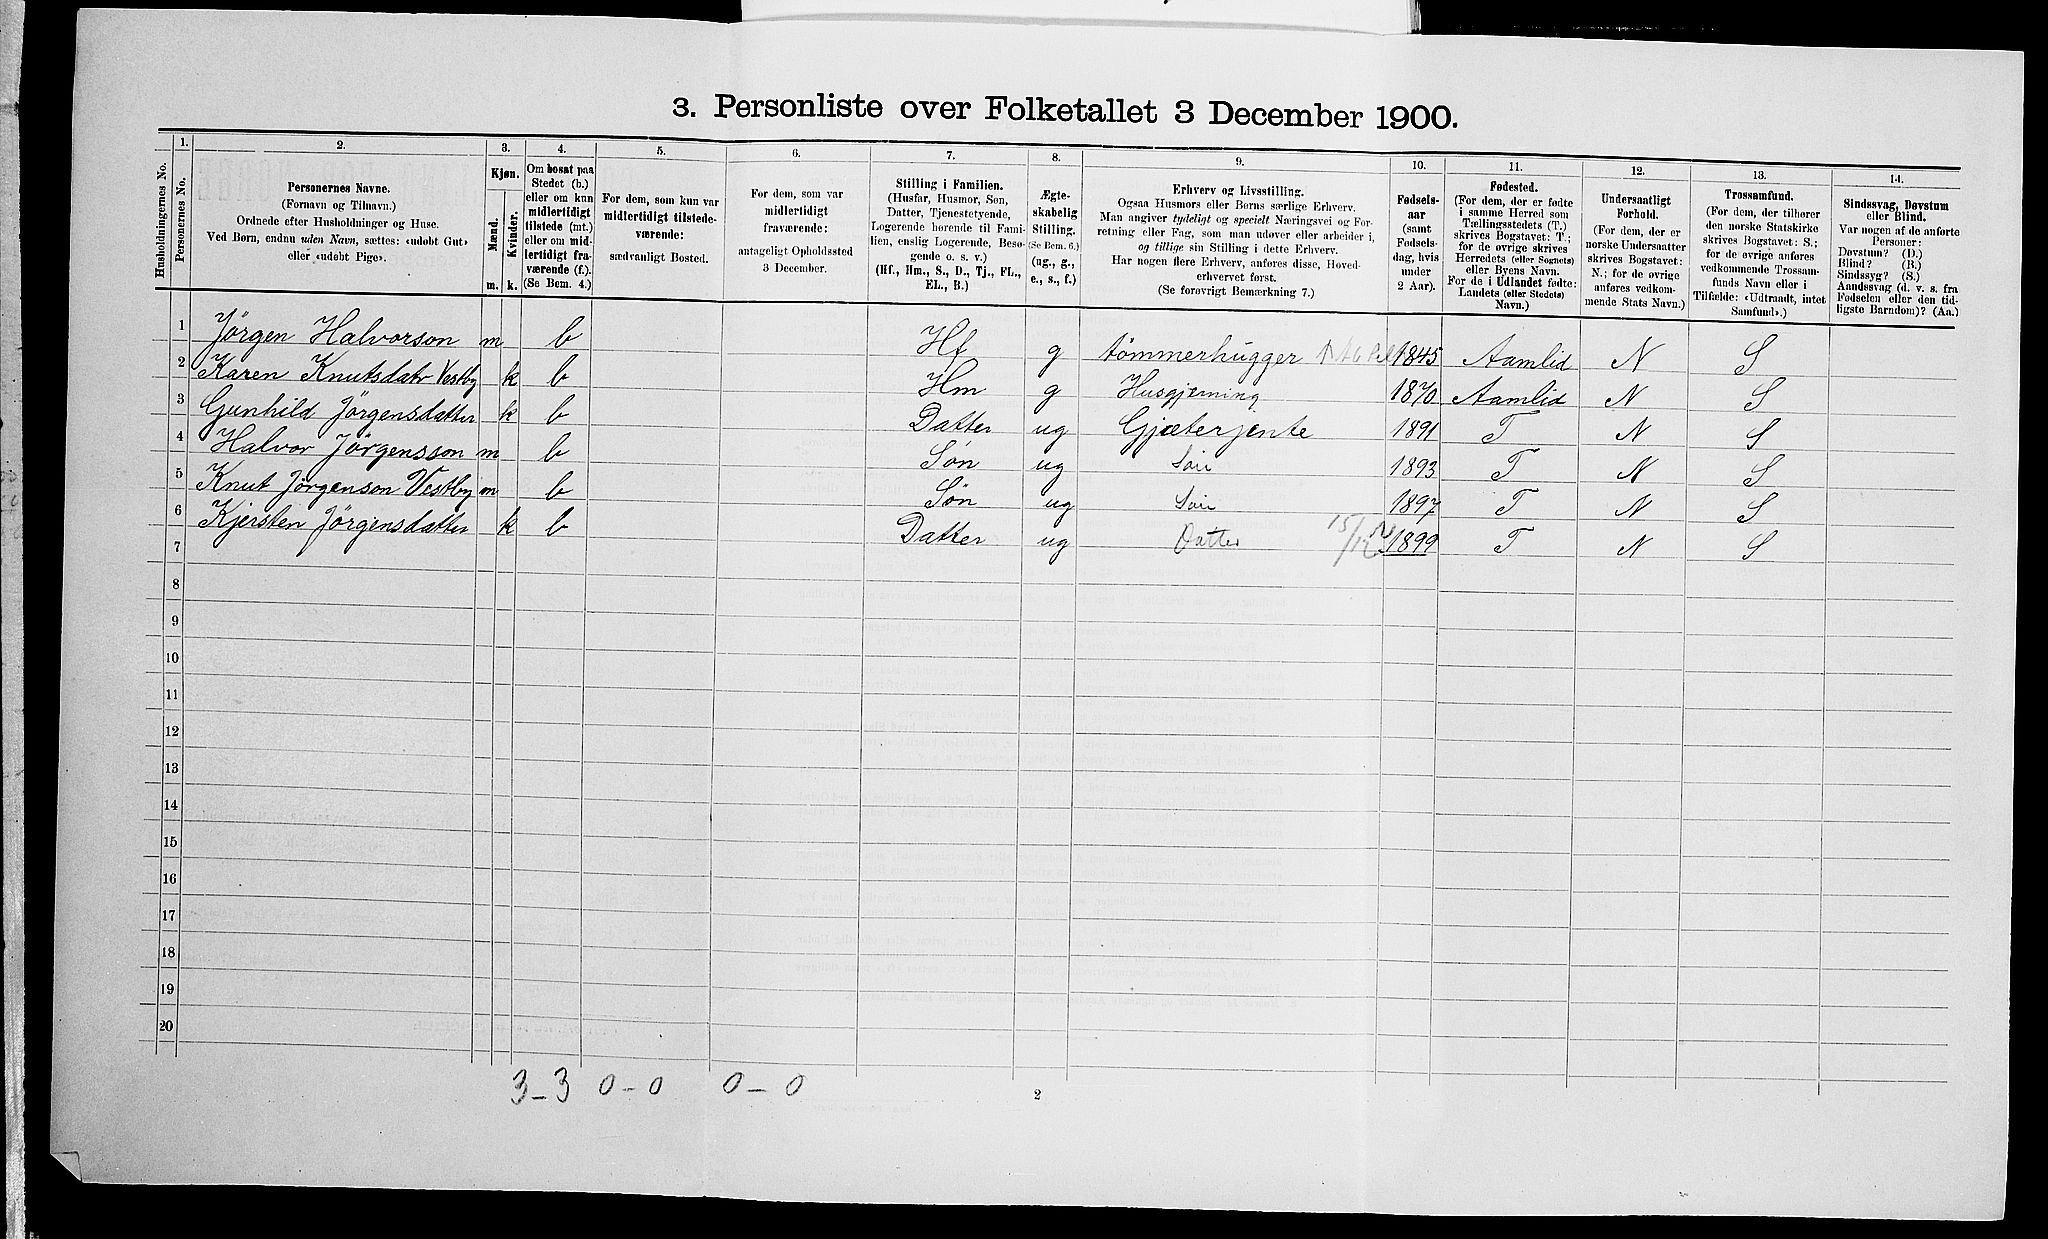 3. Personliste over Folketallet 3 December 1900.
1. 2. 3. 4. 5. 6. 7. 8. 9. 10. 11. 12. 13. 14.
Husholdningernes No.
Personernes No.
Personernes Navne.
(Fornavn og Tilnavn.)
Ordnede efter Husholdninger og Huse.
Ved Børn, endnu uden Navn, sættes: «udøbt Gut»
eller «udøbt Pige».
Kjøn.
Mænd.
Kvinder.
m. k.
Om bosat paa
Stedet (b.)
eller om kun
midlertidigt
tilstede (mt.)
eller om mid-
lertidigt fra-
værende (f.).
(Se Bem. 4.)
For dem, som kun var
midlertidigt tilstede-
værende:
sædvanligt Bosted.
For dem, som var
midlertidigt
fraværende:
antageligt Opholdssted
3 December.
Stilling i Familien.
(Husfar, Husmor, Søn,
Datter, Tjenestetyende,
Logerende hørende til Fami-
lien, enslig Logerende, Besø-
gende o. s. v.)
(Hf., Hm., S., D., Tj., FL.,
EL., B.)
Ægte-
skabelig
Stilling.
(Se Bem. 6.)
(ug., g.,
e., s., f.)
Erhverv og Livsstilling.
Ogsaa Husmors eller Børns særlige Erhverv.
Man angiver tydeligt og specielt Næringsvei og For-
retning eller Fag, som man udøver eller arbeider i,
og tillige sin Stilling i dette Erhverv.
Har nogen flere Erhverv, anføres disse, Hoved-
erhvervet først.
(Se forøvrigt Bemærkning 7.)
Fødsels-
aar
(samt
Fødsels-
dag, hvis
under
2 Aar).
Fødested.
(For dem, der er fødte
i samme Herred som
Tællingsstedets (T.)
skrives Bogstavet: T.;
for de øvrige skrives
Herredets (eller Sognets)
eller Byens Navn.
For de i Udlandet fødte:
Landets (eller Stedets)
Navn.)
Undersaatligt
Forhold.
(For dem, der er
norske Undersaatter
skrives Bogstavet:
N.; for de øvrige
anføres vedkom-
mende Stats Navn.)
Trossamfund.
(For dem, der tilhører
den norske Statskirke
skrives Bogstavet: S.;
for de øvrige anføres
vedkommende Trossam-
funds Navn eller i
Tilfælde: «Udtraadt, intet
Samfund».)
Sindssvag, Døvstum
eller Blind.
Var nogen af de anførte
Personer:
Døvstum? (D.)
Blind? (B.)
Sindssyg? (S.)
Aandssvag (d. v. s. fra
Fødselen eller den tid-
ligste Barndom)? (Aa.)
1 Jørgen Halvorson m b Hf g tömmerhugger 1845 Aamlid N S
2 Karen Knutsdatr Vestby k b Hm g Husgjerning 1870 Aamlid N S
3 Gunhild Jörgensdatter k b Datter ug Gjæterjente 1891 T N S
4 Halvor Jörgensson m b Søn ug Søn 1893 T N S
5 Knut Jörgenson Vestby m b Søn ug Søn 1897 T N S
6 Kjersten Jörgensdatter k b Datter ug Datter 15/12 1899 T N S
7
8
9
10
11
12
13
14
15
16
17
18
19
20
3-3 0-0 0-0
2